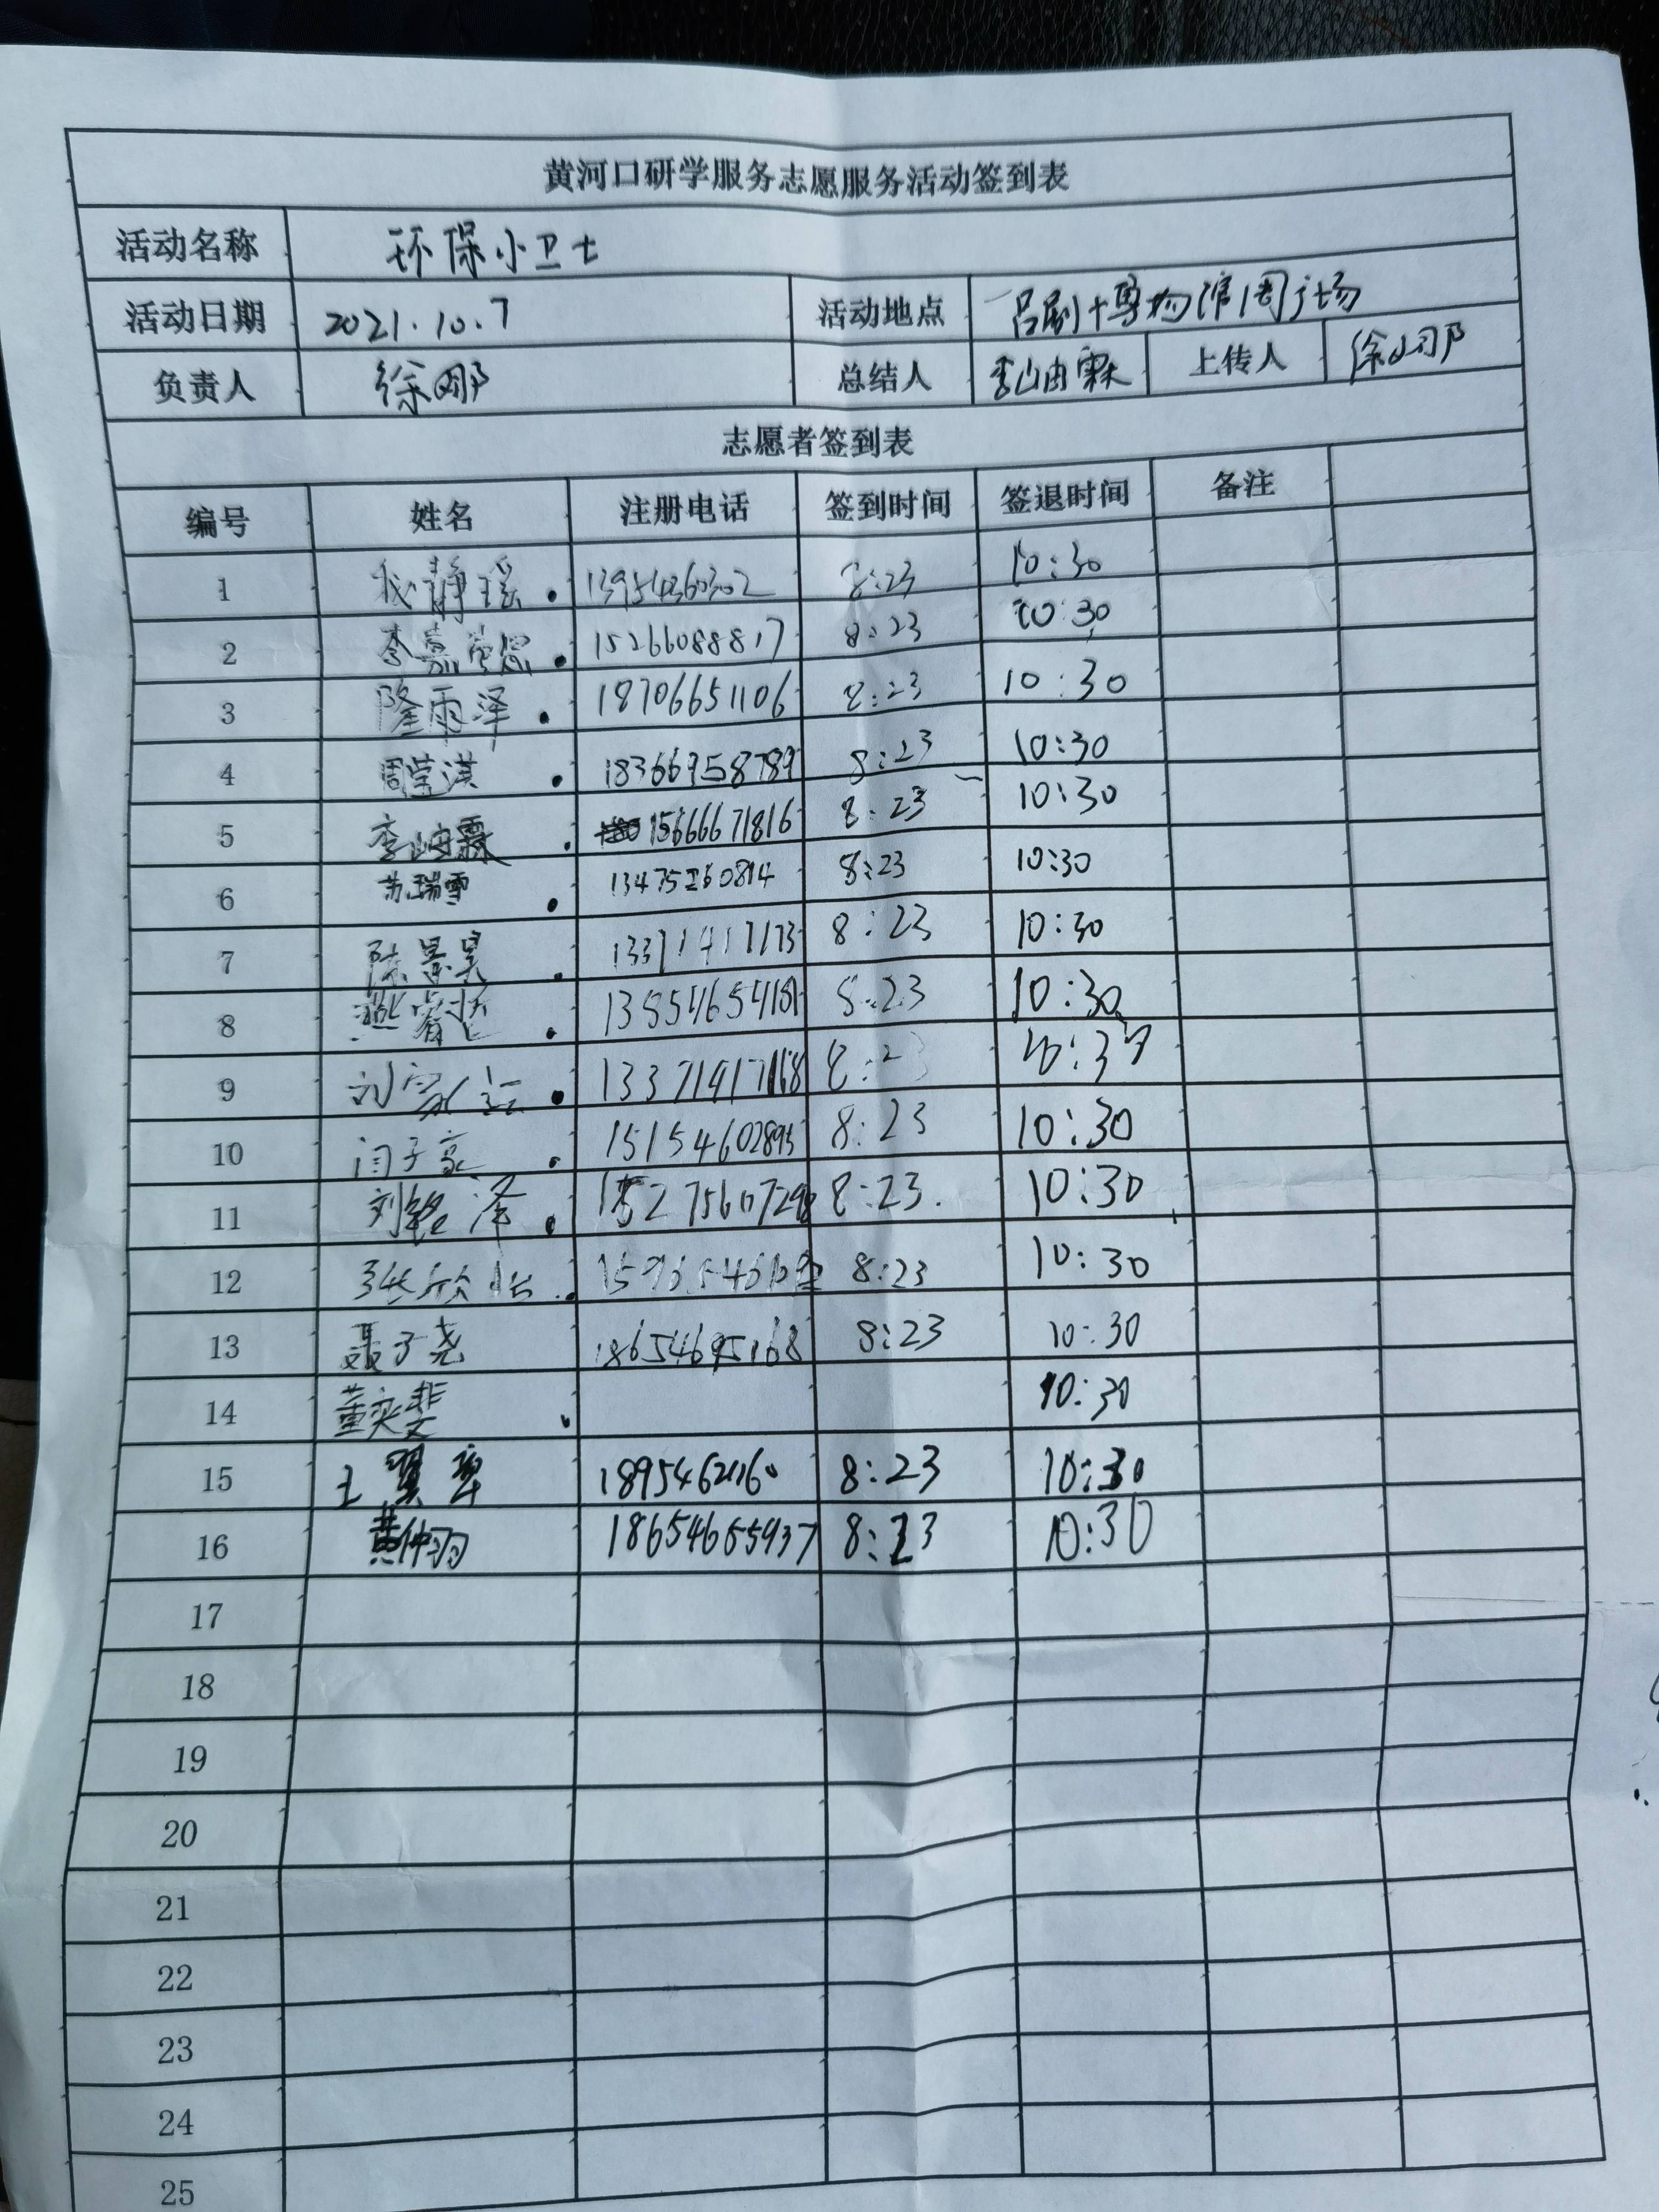 黄河口研学服务志愿服务活动签到表
活动名称 环保小卫士
活动日期 2021.10.7 活动地点 吕剧博物馆周广场
负责人 徐娜 总结人 李岫霖 上传人 徐娜
志愿者签到表
编号 姓名 注册电话 签到时间 签退时间 备注
1 静瑶 13954360302 8:23 10:30
2 李嘉 15266088817 8:23 10:30
3 隆雨泽 18706651106 8:23 10:30
4 周莹淇 18366958789 8:23 10:30
5 李岫霖 15666671816 8:23 10:30
6 苏瑞雪 13475260814 8:23 10:30
7 陈景昊 13371417173 8:23 10:30
8 燕睿哲 13854654181 8:23 10:30
9 刘家 13371417168 8:23 10:30
10 闫子豪 15154602895 8:23 10:30
11 刘铭泽 8:23. 10:30
12 张欣怡 8:23 10:30
13 聂子尧 18654695168 8:23 10:30
14 董奕斐 10:30
15 王翼 8:23 10:30
16 黄仲羽 18654655937 8:23 10:30
17
18
19
20
21
22
23
24
25